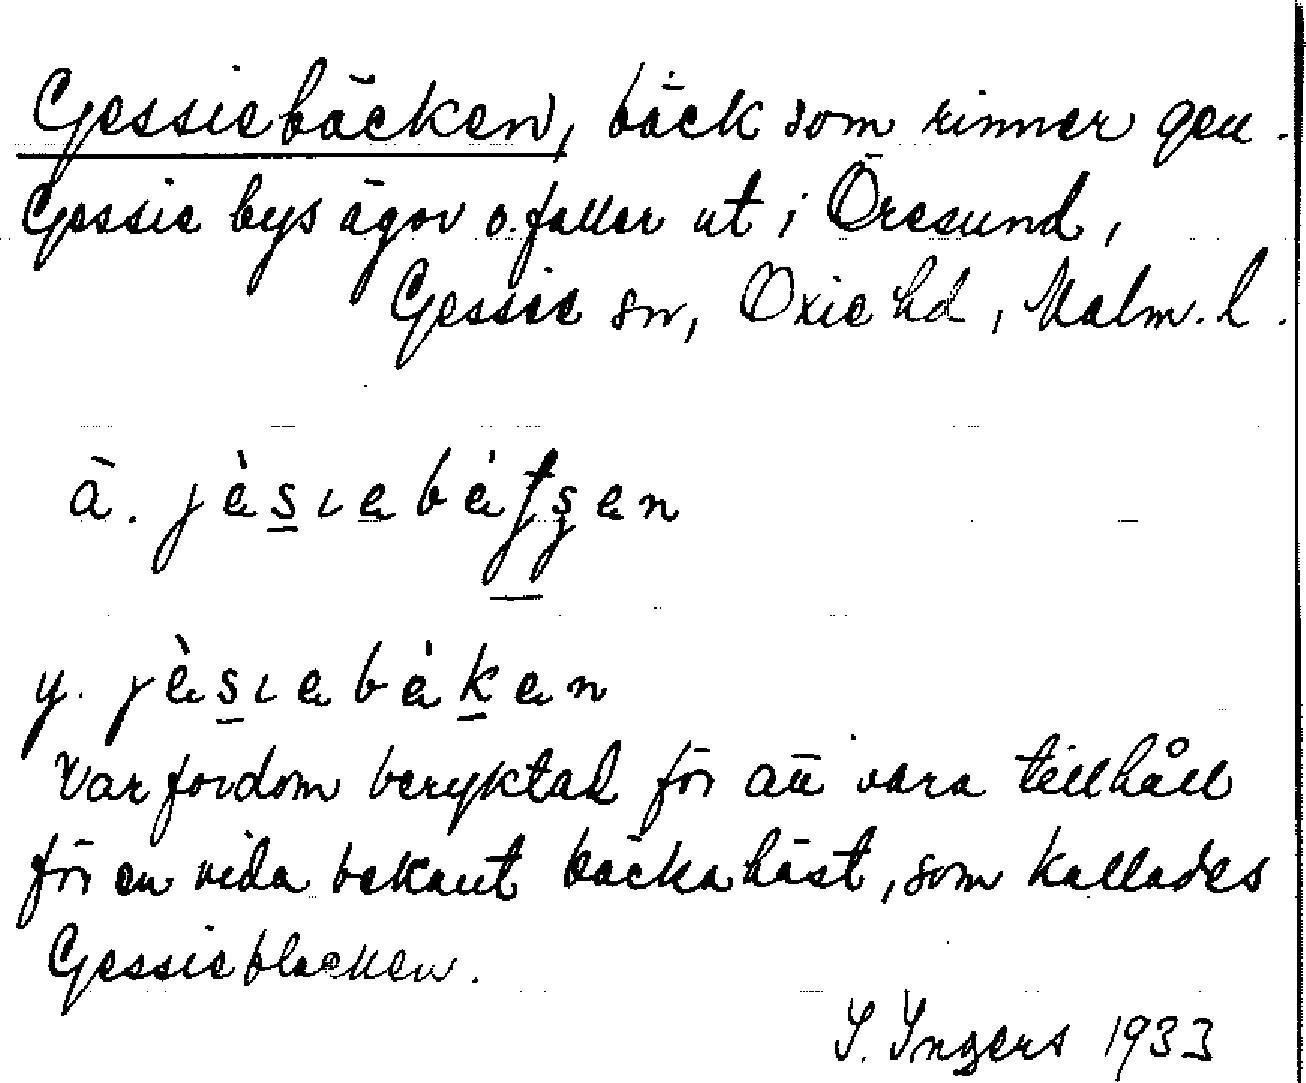 Gessiebäcken, bäck som rinner gen.
Gessie bys ägor o. faller ut i Öresund,
Gessie sn, Oxie hd, Malm. l.
ä. jèsɩebéʧen
y. jèsɩebéken
Var fordom beryktad för att vara tillhåll
för en vida bekant bäckahäst, som kallades
Gessieblacken.
I. Ingers 1933